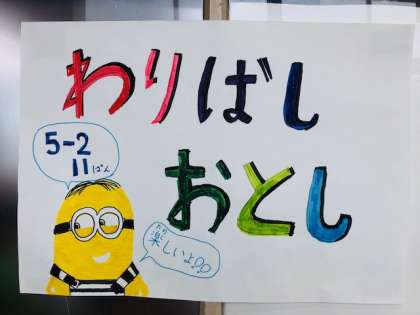 わりばし
おとし
5-2
11ぱん
楽しいよ!!